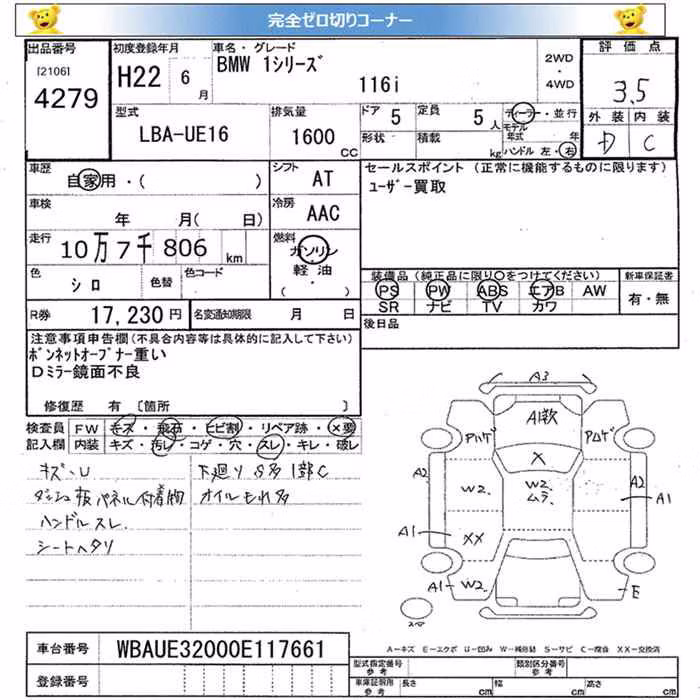 完全ゼロ切りコーナー
出品番号
[2106]
4279
初度登録年月
H22 6月
車名・グレード
BMW 1シリーズ
116i
2WD
・
4WD
評価点
3.5
外装 内装
D C
型式
LBA-UE16
排気量
1600
CC
ドア 5
定員 5人
形状
積載 kg
ディーラー・並行
モデル
年式 年
ハンドル 左・右
車歴
自家用・( )
シフト
AT
車検
年 月( 日)
冷房
AAC
走行
10万7千806km
燃料
ガソリン
軽油
・
( )
色
シロ
色替
色コード
R券
17,230円
名変通知期限 月 日
セールスポイント (正常に機能するものに限ります)
ユーザー買取
装備品(純正品に限り○をつけてください)
PS PW ABS エアB AW
SR ナビ TV カワ
新車保証書
有・無
後日品
注意事項申告欄(不具合内容等は具体的に記入して下さい)
ボンネットオープナー重い
Dミラー鏡面不良
修復歴 有 [箇所 ]
検査員
記入欄
FW キズ・飛石・ヒビ割・リペア跡・×要
内装 キズ・汚レ・コゲ・穴・スレ・キレ・破レ
キズ・U
ダッシュ板パネル付着物
ハンドルスレ
シートヘタリ
下廻りS多1部C
オイルモレ多
A3
A1数
Pハゲ
PムゲX
W2
W2
ムラ
A2
A2
A1
A1
XX
A1
W2
E
スペ
A-キズ E-エクボ U-凹み W-補修跡 S-サビ C-腐食 XX-交換済
車台番号
WBAUE32000E117661
登録番号
型式指定番号
参考
類別区分番号
参考
車庫証明用
参考
長さ cm
幅 cm
高さ cm